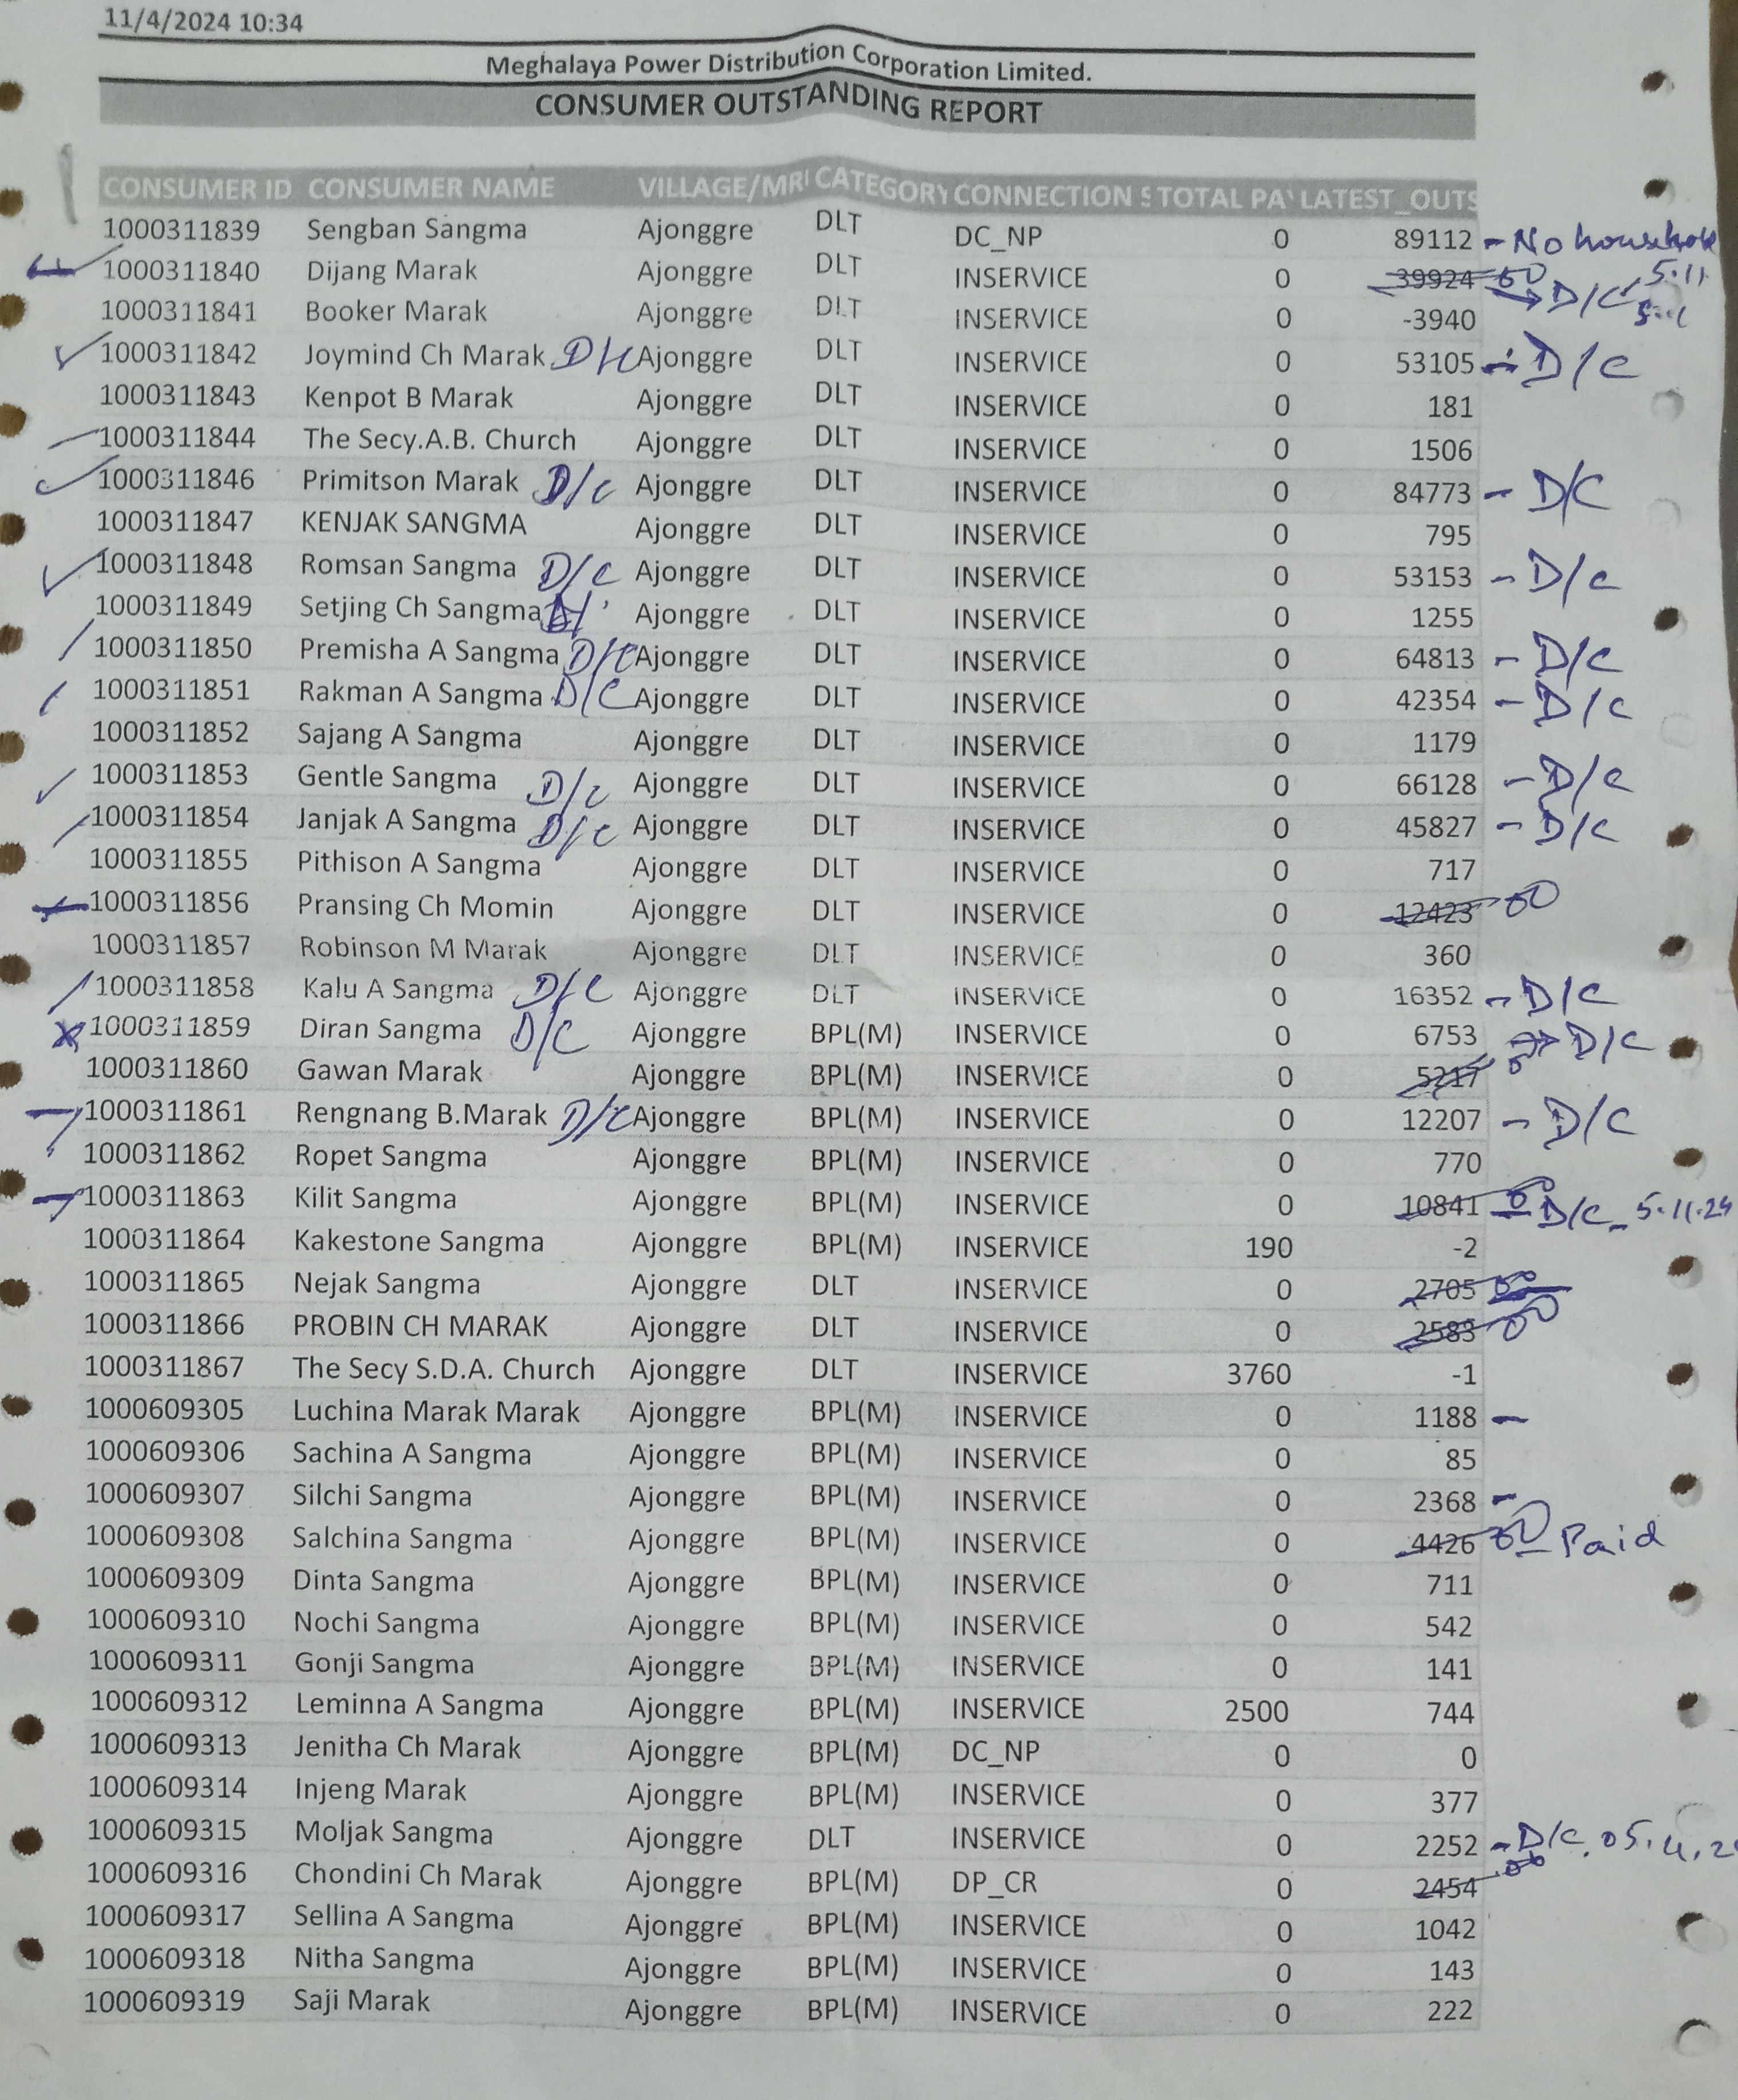 11/4/2024 10:34
Meghalaya Power Distribution Corporation Limited.
CONSUMER OUTSTANDING REPORT
CONSUMER ID CONSUMER NAME VILLAGE/MRI CATEGORY CONNECTION S TOTAL PAY LATEST_OUTS
1000311839 Sengban Sangma Ajonggre DLT DC_NP 0 89112 - No household
1000311840 Dijang Marak Ajonggre DLT INSERVICE 0 39924 → D/C 5.11
1000311841 Booker Marak Ajonggre DLT INSERVICE 0 -3940
1000311842 Joymind Ch Marak D/C Ajonggre DLT INSERVICE 0 53105 - D/C
1000311843 Kenpot B Marak Ajonggre DLT INSERVICE 0 181
1000311844 The Secy.A.B. Church Ajonggre DLT INSERVICE 0 1506
1000311846 Primitson Marak D/C Ajonggre DLT INSERVICE 0 84773 - D/C
1000311847 KENJAK SANGMA Ajonggre DLT INSERVICE 0 795
1000311848 Romsan Sangma D/C Ajonggre DLT INSERVICE 0 53153 - D/C
1000311849 Setjing Ch Sangma Ajonggre DLT INSERVICE 0 1255
1000311850 Premisha A Sangma D/C Ajonggre DLT INSERVICE 0 64813 - D/C
1000311851 Rakman A Sangma D/C Ajonggre DLT INSERVICE 0 42354 - D/C
1000311852 Sajang A Sangma Ajonggre DLT INSERVICE 0 1179
1000311853 Gentle Sangma D/C Ajonggre DLT INSERVICE 0 66128 - D/C
1000311854 Janjak A Sangma D/C Ajonggre DLT INSERVICE 0 45827 - D/C
1000311855 Pithison A Sangma Ajonggre DLT INSERVICE 0 717
1000311856 Pransing Ch Momin Ajonggre DLT INSERVICE 0 12423
1000311857 Robinson M Marak Ajonggre DLT INSERVICE 0 360
1000311858 Kalu A Sangma D/C Ajonggre DLT INSERVICE 0 16352 - D/C
1000311859 Diran Sangma D/C Ajonggre BPL(M) INSERVICE 0 6753 → D/C
1000311860 Gawan Marak Ajonggre BPL(M) INSERVICE 0 5217
1000311861 Rengnang B.Marak D/C Ajonggre BPL(M) INSERVICE 0 12207 - D/C
1000311862 Ropet Sangma Ajonggre BPL(M) INSERVICE 0 770
1000311863 Kilit Sangma Ajonggre BPL(M) INSERVICE 0 10841 D/C - 5.11.24
1000311864 Kakestone Sangma Ajonggre BPL(M) INSERVICE 190 -2
1000311865 Nejak Sangma Ajonggre DLT INSERVICE 0 2705
1000311866 PROBIN CH MARAK Ajonggre DLT INSERVICE 0 2583
1000311867 The Secy S.D.A. Church Ajonggre DLT INSERVICE 3760 -1
1000609305 Luchina Marak Marak Ajonggre BPL(M) INSERVICE 0 1188 -
1000609306 Sachina A Sangma Ajonggre BPL(M) INSERVICE 0 85
1000609307 Silchi Sangma Ajonggre BPL(M) INSERVICE 0 2368 -
1000609308 Salchina Sangma Ajonggre BPL(M) INSERVICE 0 4426 Paid
1000609309 Dinta Sangma Ajonggre BPL(M) INSERVICE 0 711
1000609310 Nochi Sangma Ajonggre BPL(M) INSERVICE 0 542
1000609311 Gonji Sangma Ajonggre BPL(M) INSERVICE 0 141
1000609312 Leminna A Sangma Ajonggre BPL(M) INSERVICE 2500 744
1000609313 Jenitha Ch Marak Ajonggre BPL(M) DC_NP 0 0
1000609314 Injeng Marak Ajonggre BPL(M) INSERVICE 0 377
1000609315 Moljak Sangma Ajonggre DLT INSERVICE 0 2252 - D/C. 05.11.2
1000609316 Chondini Ch Marak Ajonggre BPL(M) DP_CR 0 2454
1000609317 Sellina A Sangma Ajonggre BPL(M) INSERVICE 0 1042
1000609318 Nitha Sangma Ajonggre BPL(M) INSERVICE 0 143
1000609319 Saji Marak Ajonggre BPL(M) INSERVICE 0 222